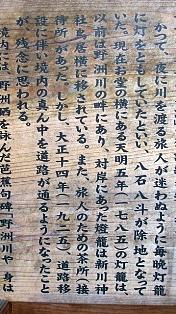 かつて、夜に川を渡る旅人が迷わぬように毎晩灯籠
に灯をともしていたといい、八石八斗が除地となって
いた。現在お堂の横にある天明五年(一七八五)の灯籠は、
以前は野洲川の畔にあり、対岸にあった燈籠は新川神
社鳥居横に移されている。また、旅人のための茶所接
待所があった。しかし、大正十四年(一九二五)道路移
設に伴い境内の真ん中を道路が通るようになったこと
が、残念に思われる。
境内には、野洲晒を詠んだ芭蕉句碑「野洲川や 身は